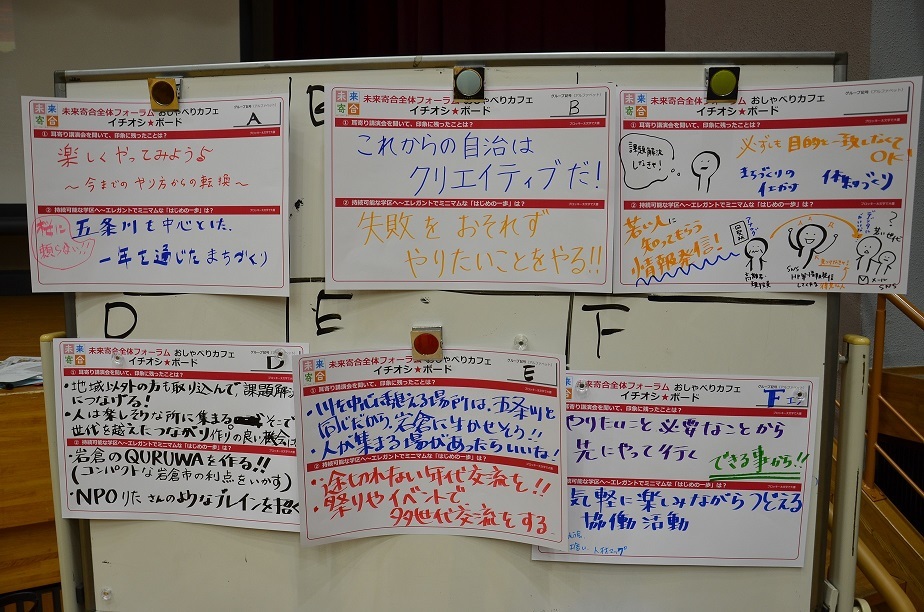 未来寄合
未来寄合全体フォーラム おしゃべりカフェ
イチオシ★ボード
A
① 耳寄り講演会を聞いて、印象に残ったことは?
楽しくやってみよう♪
～今までのやり方からの転換～
② 持続可能な学区へ～エレガントでミニマムな「はじめの一歩」は?
桜に頼らない!!
五条川を中心とした、
一年を通じたまちづくり
未来寄合
未来寄合全体フォーラム おしゃべりカフェ
イチオシ★ボード
B
① 耳寄り講演会を聞いて、印象に残ったことは?
これからの自治は
クリエイティブだ!
② 持続可能な学区へ～エレガントでミニマムな「はじめの一歩」は?
失敗をおそれず
やりたいことをやる!!
未来寄合
未来寄合全体フォーラム おしゃべりカフェ
イチオシ★ボード
① 耳寄り講演会を聞いて、印象に残ったことは?
課題解決しなきゃ!
必ずしも目的と一致しなくてOK!
まちづくりの仕方
体制づくり
② 持続可能な学区へ～エレガントでミニマムな「はじめの一歩」は?
若い人に
知ってもらう
情報発信!
若い世代
メール
SNS
D
E
F
未来寄合
未来寄合全体フォーラム おしゃべりカフェ
イチオシ★ボード
D
① 耳寄り講演会を聞いて、印象に残ったことは?
・地域以外の力も取り込んで、課題解決
につなげる!
・人は楽しそうな所に集まる そこで
世代を越えたつながり作りの良い機会に
② 持続可能な学区へ～エレガントでミニマムな「はじめの一歩」は?
・岩倉のQURUWAを作る!!
(コンパクトな岩倉市の利点をいかす)
・NPOりたさんのようなブレインを招く
未来寄合
未来寄合全体フォーラム おしゃべりカフェ
イチオシ★ボード
E
① 耳寄り講演会を聞いて、印象に残ったことは?
・川を中心に越える場所は、五条川と
同じだから、岩倉に生かせそう!!
・人が集まる場があったらいいね!
② 持続可能な学区へ～エレガントでミニマムな「はじめの一歩」は?
・途切れない年代交流を!!
・祭りやイベントで
多世代交流をする
未来寄合全体フォーラム おしゃべりカフェ
イチオシ★ボード
F
やりたいこと必要なことから
先にやって行く
できる事から!!
気軽に楽しみながらつどえる
協働活動